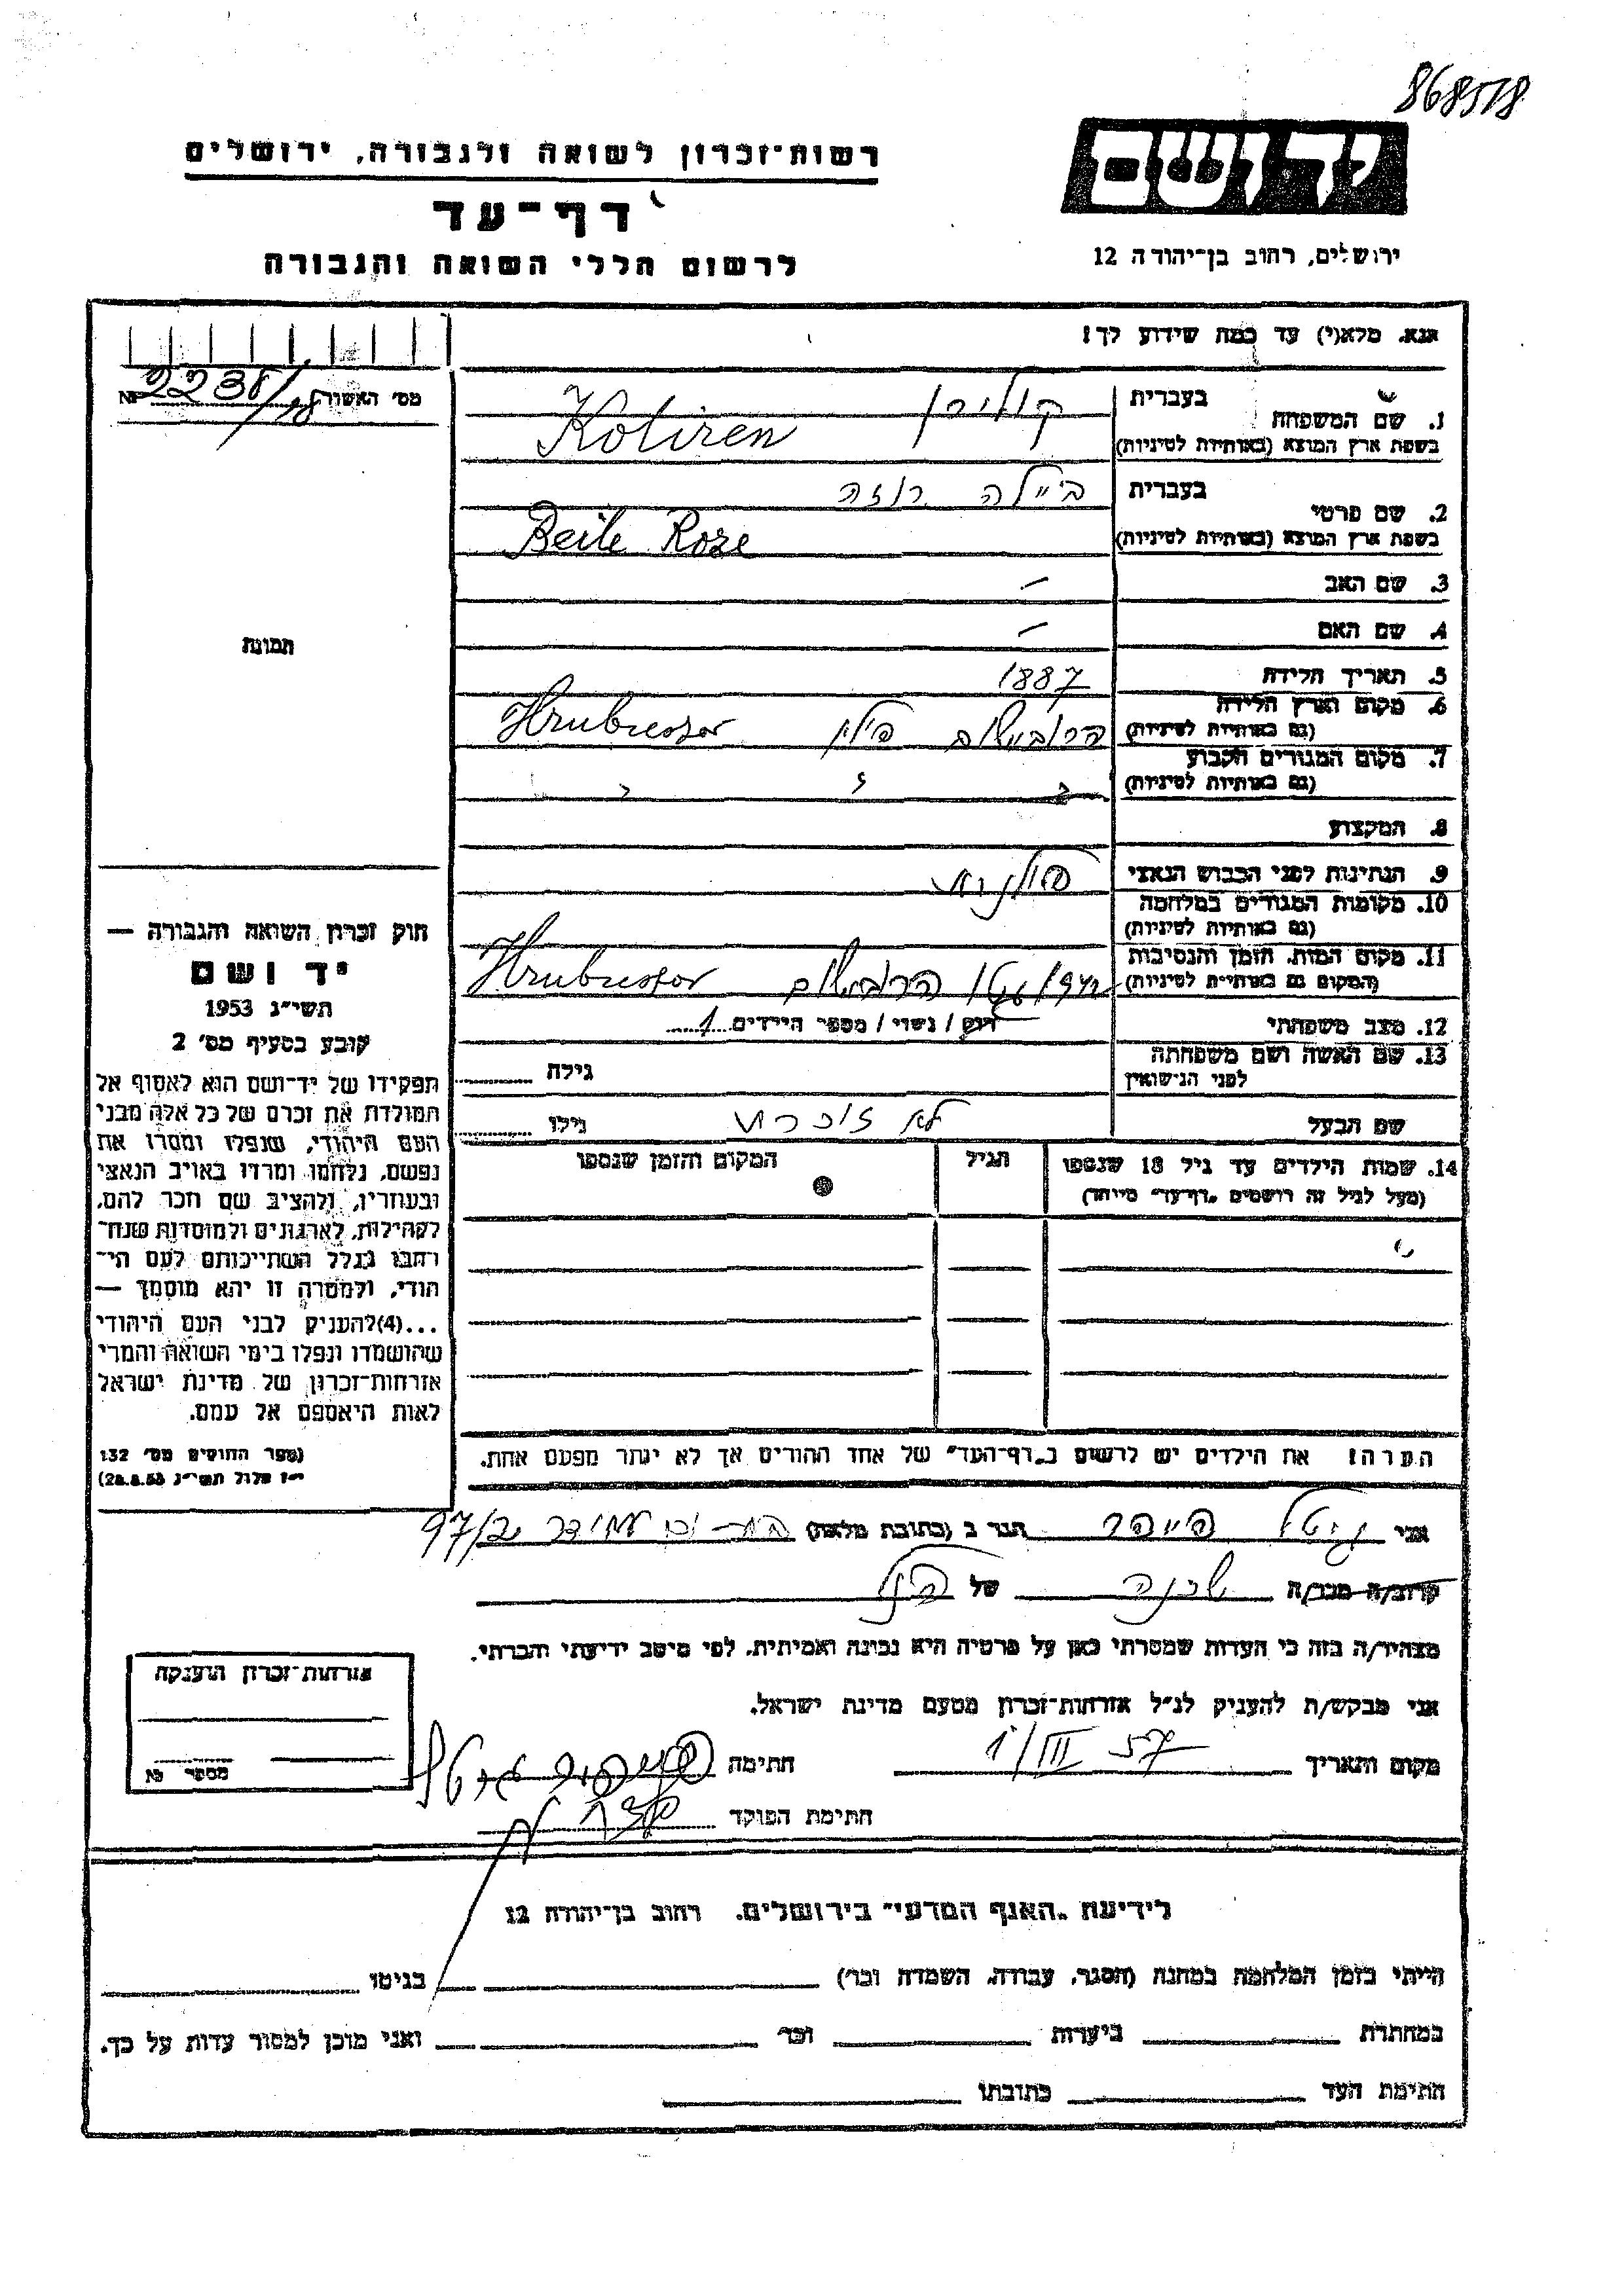 868518
יד ושם
רשות־זכרון לשואה ולגבורה, ירושלים
דף־עד
לרשום חללי השואה והגבורה
ירושלים, רחוב בן־יהודה 12
אנא, מלא(י) עד כמה שידוע לך!
מס׳ האשור
בעברית
1. שם המשפחה קולירן
בשפת ארץ המוצא (באותיות לטיניות) Koliren
בעברית ביילה רוזה
2. שם פרטי
בשפת ארץ המוצא (באותיות לטיניות) Beile Roze
3. שם האב —
4. שם האם —
תמונה
5. תאריך הלידה 1887
6. מקום וארץ הלידה הרוביישוב פולין
(גם באותיות לטיניות)
7. מקום המגורים הקבוע
(גם באותיות לטיניות)
8. המקצוע
9. הנתינות לפני הכבוש הנאצי פולנית
10. מקומות המגורים במלחמה
(גם באותיות לטיניות)
11. מקום המות, הזמן והנסיבות
(המקום גם באותיות לטיניות)
12. מצב משפחתי רווק / נשוי / מספר הילדים 1
13. שם האשה ושם משפחתה גילה
לפני הנישואין
שם הבעל לא זוכרת גילו
14. שמות הילדים עד גיל 18 שנספו הגיל המקום והזמן שנספו
(מעל לגיל זה רושמים „דף־עד״ מיוחד)
חוק זכרון השואה והגבורה —
יד ושם
תשי״ג 1953
קובע בסעיף מס׳ 2
תפקידו של יד־ושם הוא לאסוף אל
המולדת את זכרם של כל אלה מבני
העם היהודי, שנפלו ומסרו את
נפשם, נלחמו ומרדו באויב הנאצי
ובעוזריו, ולהציב שם וזכר להם,
לקהילות, לארגונים ולמוסדות שנח־
רבו בגלל השתייכותם לעם הי־
הודי, ולמטרה זו יהא מוסמך —
...(4) להעניק לבני העם היהודי
שהושמדו ונפלו בימי השואה והמרי
אזרחות־זכרון של מדינת ישראל
לאות היאספם אל עמם.
(ספר החוקים מס׳ 132
י״ז אלול תשי״ג 28.8.53)
הערה! את הילדים יש לרשום ב„דף־העד״ של אחד ההורים אך לא יותר מפעם אחת.
אני גיטל פייפר הגר ב (כתובת מלאה)
קרוב/ה מכר/ה שכנה של הנ״ל
מצהיר/ה בזה כי העדות שמסרתי כאן על פרטיה היא נכונה ואמיתית, לפי מיטב ידיעתי והכרתי.
אני מבקש/ת להעניק לנ״ל אזרחות־זכרון מטעם מדינת ישראל.
מקום ותאריך 1/III 57 חתימה פייפר גיטל
חתימת הפוקד
אזרחות־זכרון הוענקה
מספר
לידיעת „האגף המדעי״ בירושלים, רחוב בן־יהודה 12
הייתי בזמן המלחמה במחנה (הסגר, עבודה, השמדה וכו׳) בגיטו
במחתרת ביערות וכו׳ ואני מוכן למסור עדות על כך.
חתימת העד כתובתו